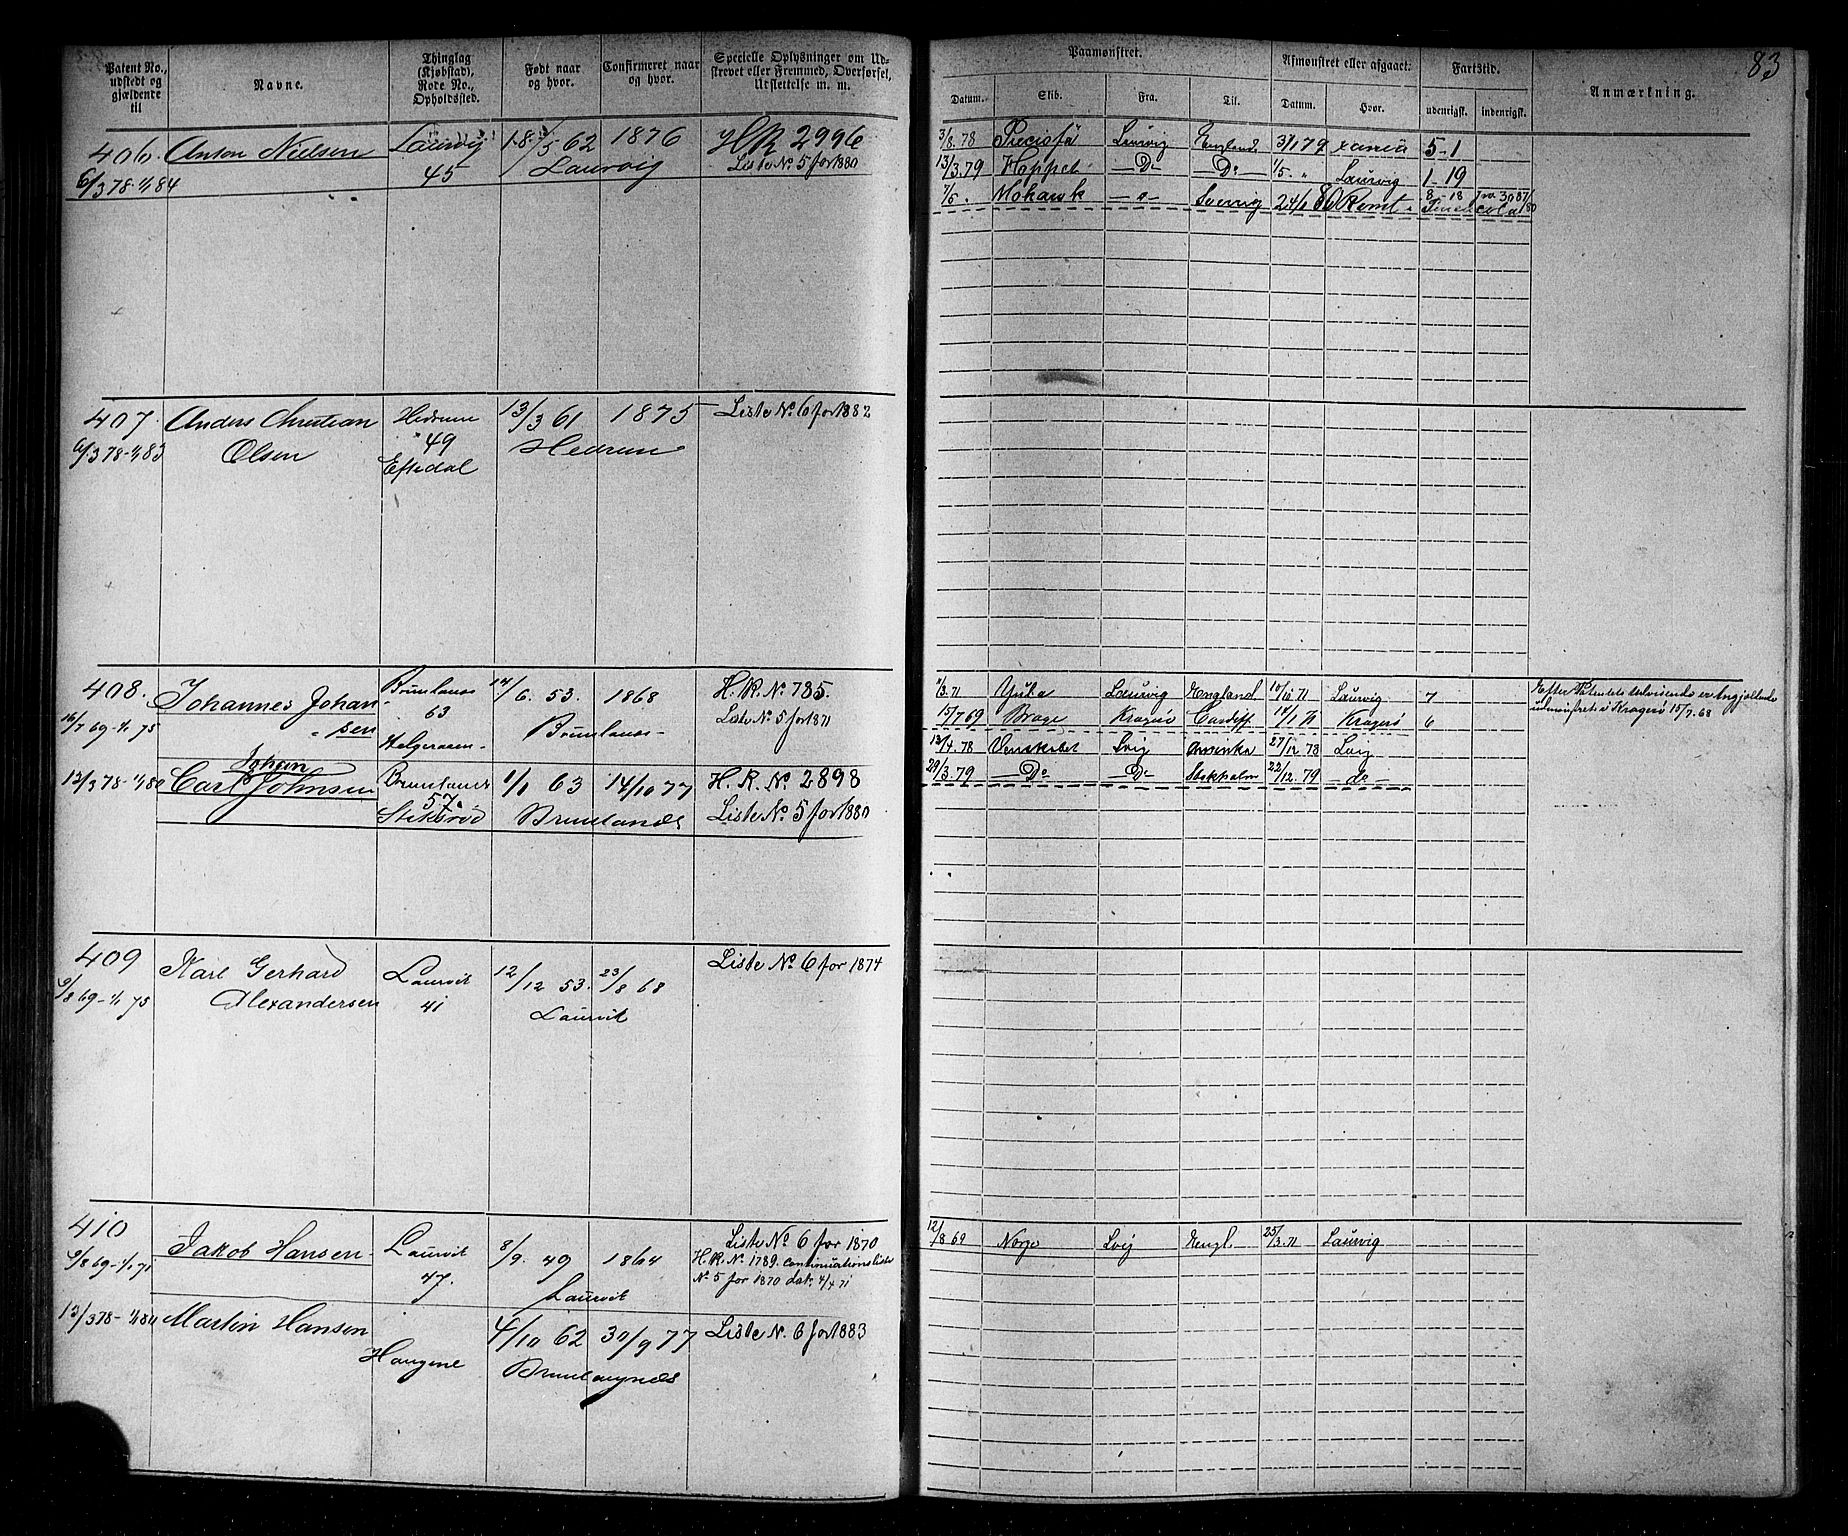 83
Patent No., udstedt og gjældende til
Navne.
Thinglag (Kjøbstad), Rode No., Opholdssted.
Født naar og hvor.
Confirmeret naar og hvor.
Specielle Oplysninger om Udskrevet eller Fremmed, Overførsel, Udslettelse m. m.
Paamønstret.
Afmønstret eller afgaaet.
Fartstid.
Anmærkning.
Datum. Skib. Fra. Til. Datum. Hvor. udenrigsk. indenrigsk.
406. Anton Nielsen Laurvig 18/5 62 1876 HR 2996
6/3 78-1/1 84 45 Laurvig Liste No 5 for 1880
3/8.78 Preciosa Laurvig England 31/1 79 xania 5-1
13/3.79 Hoppet —Do— —Do 1/5 " Laurvig 1-19
7/5. Mohawk —"— Sverrig 24/1 80 Rømt. 8-18
407 Anders Christian 13/3 61 1875 Liste No 6 for 1882
6/3 78-1/1 83 Olsen Hedrum 49 Hedrum
Eftedal
408. Johannes Johan- Brunlanæs 14/6. 53. 1868 H.R. No 785.
16/7 69-1/1 75 sen 63 Brunlanæs- Liste No 5 for 1871
Helgeroaen-
11/3.71 Yuba Laurvig England 10/10 71 Laurvig 7
15/7 69 Brage Kragerø Cardiff 14/1 71 Kragerø 6
Efter Patentets Udvisende er angjældende
udmønstret i Kragerø 15/7.68
13/4.78 Venskabet Lvig Amerika 27/12 78 Lvig
29/3.79 —Do —Do Stokholm 22/12.79 —do—
Johan
12/3 78-1/1 80 Carl Johnsen Brunlanæs 1/1 63 14/10 77 H.R. No 2898
57. Brunlanæs Liste No 5 for 1880
409 Karl Gerhard Laurvik 12/12 53. 23/8 68 Liste No 6 for 1874
9/8 69-1/1 75 Alexandersen 41 Laurvik
410 Jakob Hansen- Laurvik 8/9. 49 1864 Liste No 6 for 1870
9/8 69-1/1 71 47. Laurvik H.R. No 1789. continuationsliste
No 5 for 1870 dat. 4/4 71
12/8 69 Norge Lvig Engl. 25/3.71 Laurvig
13/3 78-1/1 84 Martin Hansen 4/10 62 30/9 77 Liste No 6 for 1883
Haugene